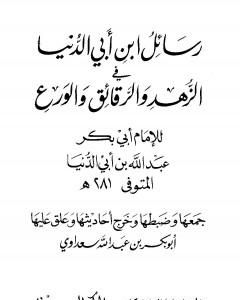 رسائل ابن أبي الدنيا
في
الزهد والرقائق والورع
للإمام أبي بكر
عبد الله بن أبي الدنيا
المتوفى ٢٨١ هـ
جمعها وضبطها وخرج أحاديثها وعلق عليها
أبو بكر بن عبد الله سعداوي